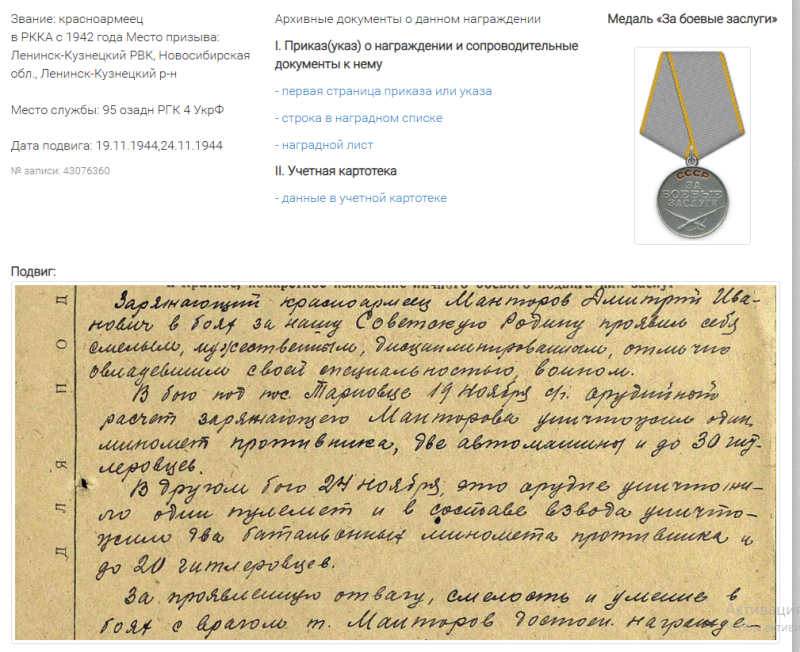 Звание: красноармеец
в РККА с 1942 года Место призыва:
Ленинск-Кузнецкий РВК, Новосибирская
обл., Ленинск-Кузнецкий р-н
Место службы: 95 озадн РГК 4 УкрФ
Дата подвига: 19.11.1944,24.11.1944
№ записи: 43076360
Архивные документы о данном награждении
I. Приказ(указ) о награждении и сопроводительные
документы к нему
- первая страница приказа или указа
- строка в наградном списке
- наградной лист
II. Учетная картотека
- данные в учетной картотеке
Медаль «За боевые заслуги»
СССР
ЗА
БОЕВЫЕ
ЗАСЛУГИ
Подвиг:
Для под
Заряжающий красноармеец Манторов Дмитрий Ива-
нович в боях за нашу Советскую Родину проявил себя
смелым, мужественным, дисциплинированным, отлично
овладевшим своей специальностью, воином.
В бою под пос. Тарновце 19 ноября с/г. орудийной
расчет заряжающего Манторова уничтожил один
миномет противника, две автомашины и до 30 гит-
леровцев.
В другом бою 24 ноября, это орудие уничтожи-
ло один пулемет и в составе взвода уничто-
жило два батальонных миномета противника и
до 20 гитлеровцев.
За проявленную отвагу, смелость и умение в
боях с врагом т. Манторов достоин награжде-
Активация